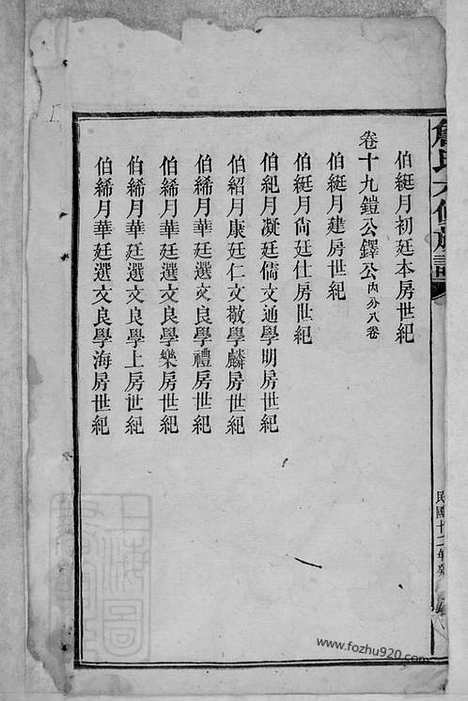 詹氏六修族譜
民國十二年癸
伯綎月初廷本房世紀
卷十九鎧公鐸公內分八卷
伯綎月建房世紀
伯綎月尙廷仕房世紀
伯紀月凝廷儒文通學明房世紀
伯紹月康廷仁文敬學麟房世紀
伯絺月華廷選文良學禮房世紀
伯絺月華廷選文良學樂房世紀
伯絺月華廷選文良學上房世紀
伯絺月華廷選文良學海房世紀
www.fozhu920.com